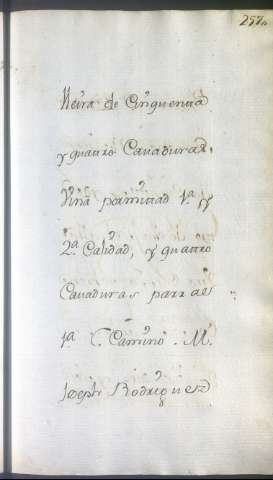 257
Neira de Cinquenta
y quatro Cavaduras,
Viña por mitad 1.ª y
2.ª Calidad, y quatro
Cavaduras parras
1.ª C. Camino. M.
Joseph Rodriguez